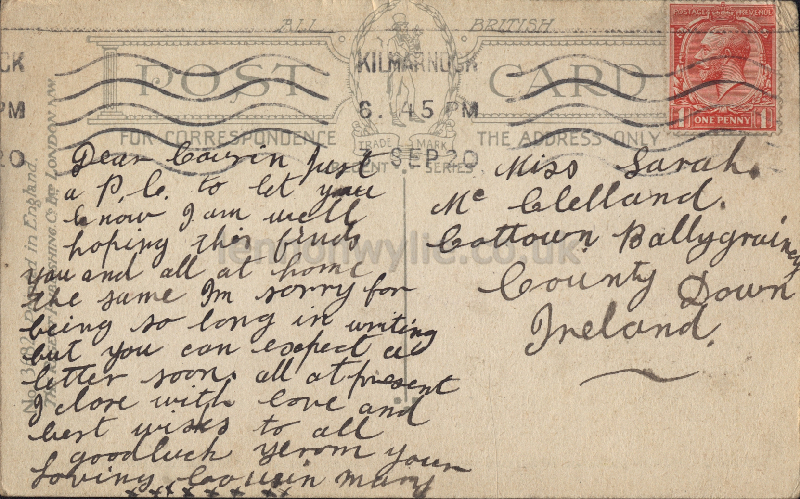 ALL BRITISH
POST CARD
KILMARNOCK
6.45 PM
SEP 20
CK
PM
20
POSTAGE REVENUE
ONE PENNY
1 1
FOR CORRESPONDENCE
THE ADDRESS ONLY
TRADE MARK
SERIES
Printed in England.
LONDON N.W.
Dear Cousin Just
a P.C. to let you
know I am well
hoping this finds
you and all at home
the same Im sorry for
being so long in writing
but you can expect a
letter soon. all at present
I close with love and
best wishs to all
goodluck from your
loving Cousin Mary
xxxxxxx
Miss Sarah.
Mc Clelland.
Cottown Ballygrainey
County Down
Ireland.
lennonwylie.co.uk